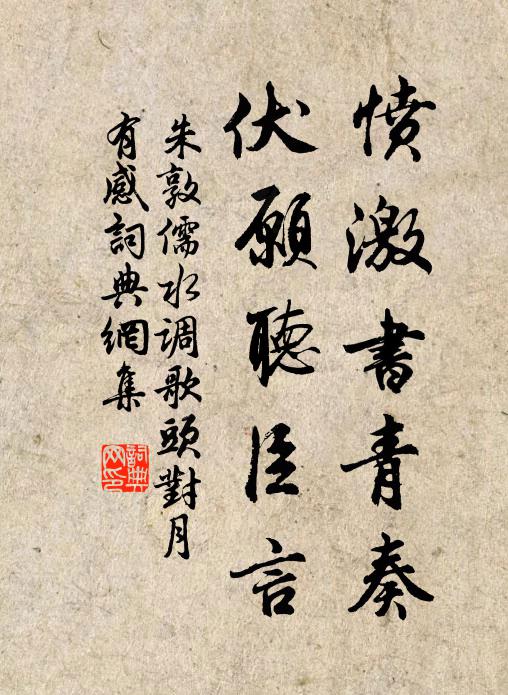 憤激書青奏
伏願聽臣言
朱敦儒水调歌頭對月
有感詞典網集
詞典
网印